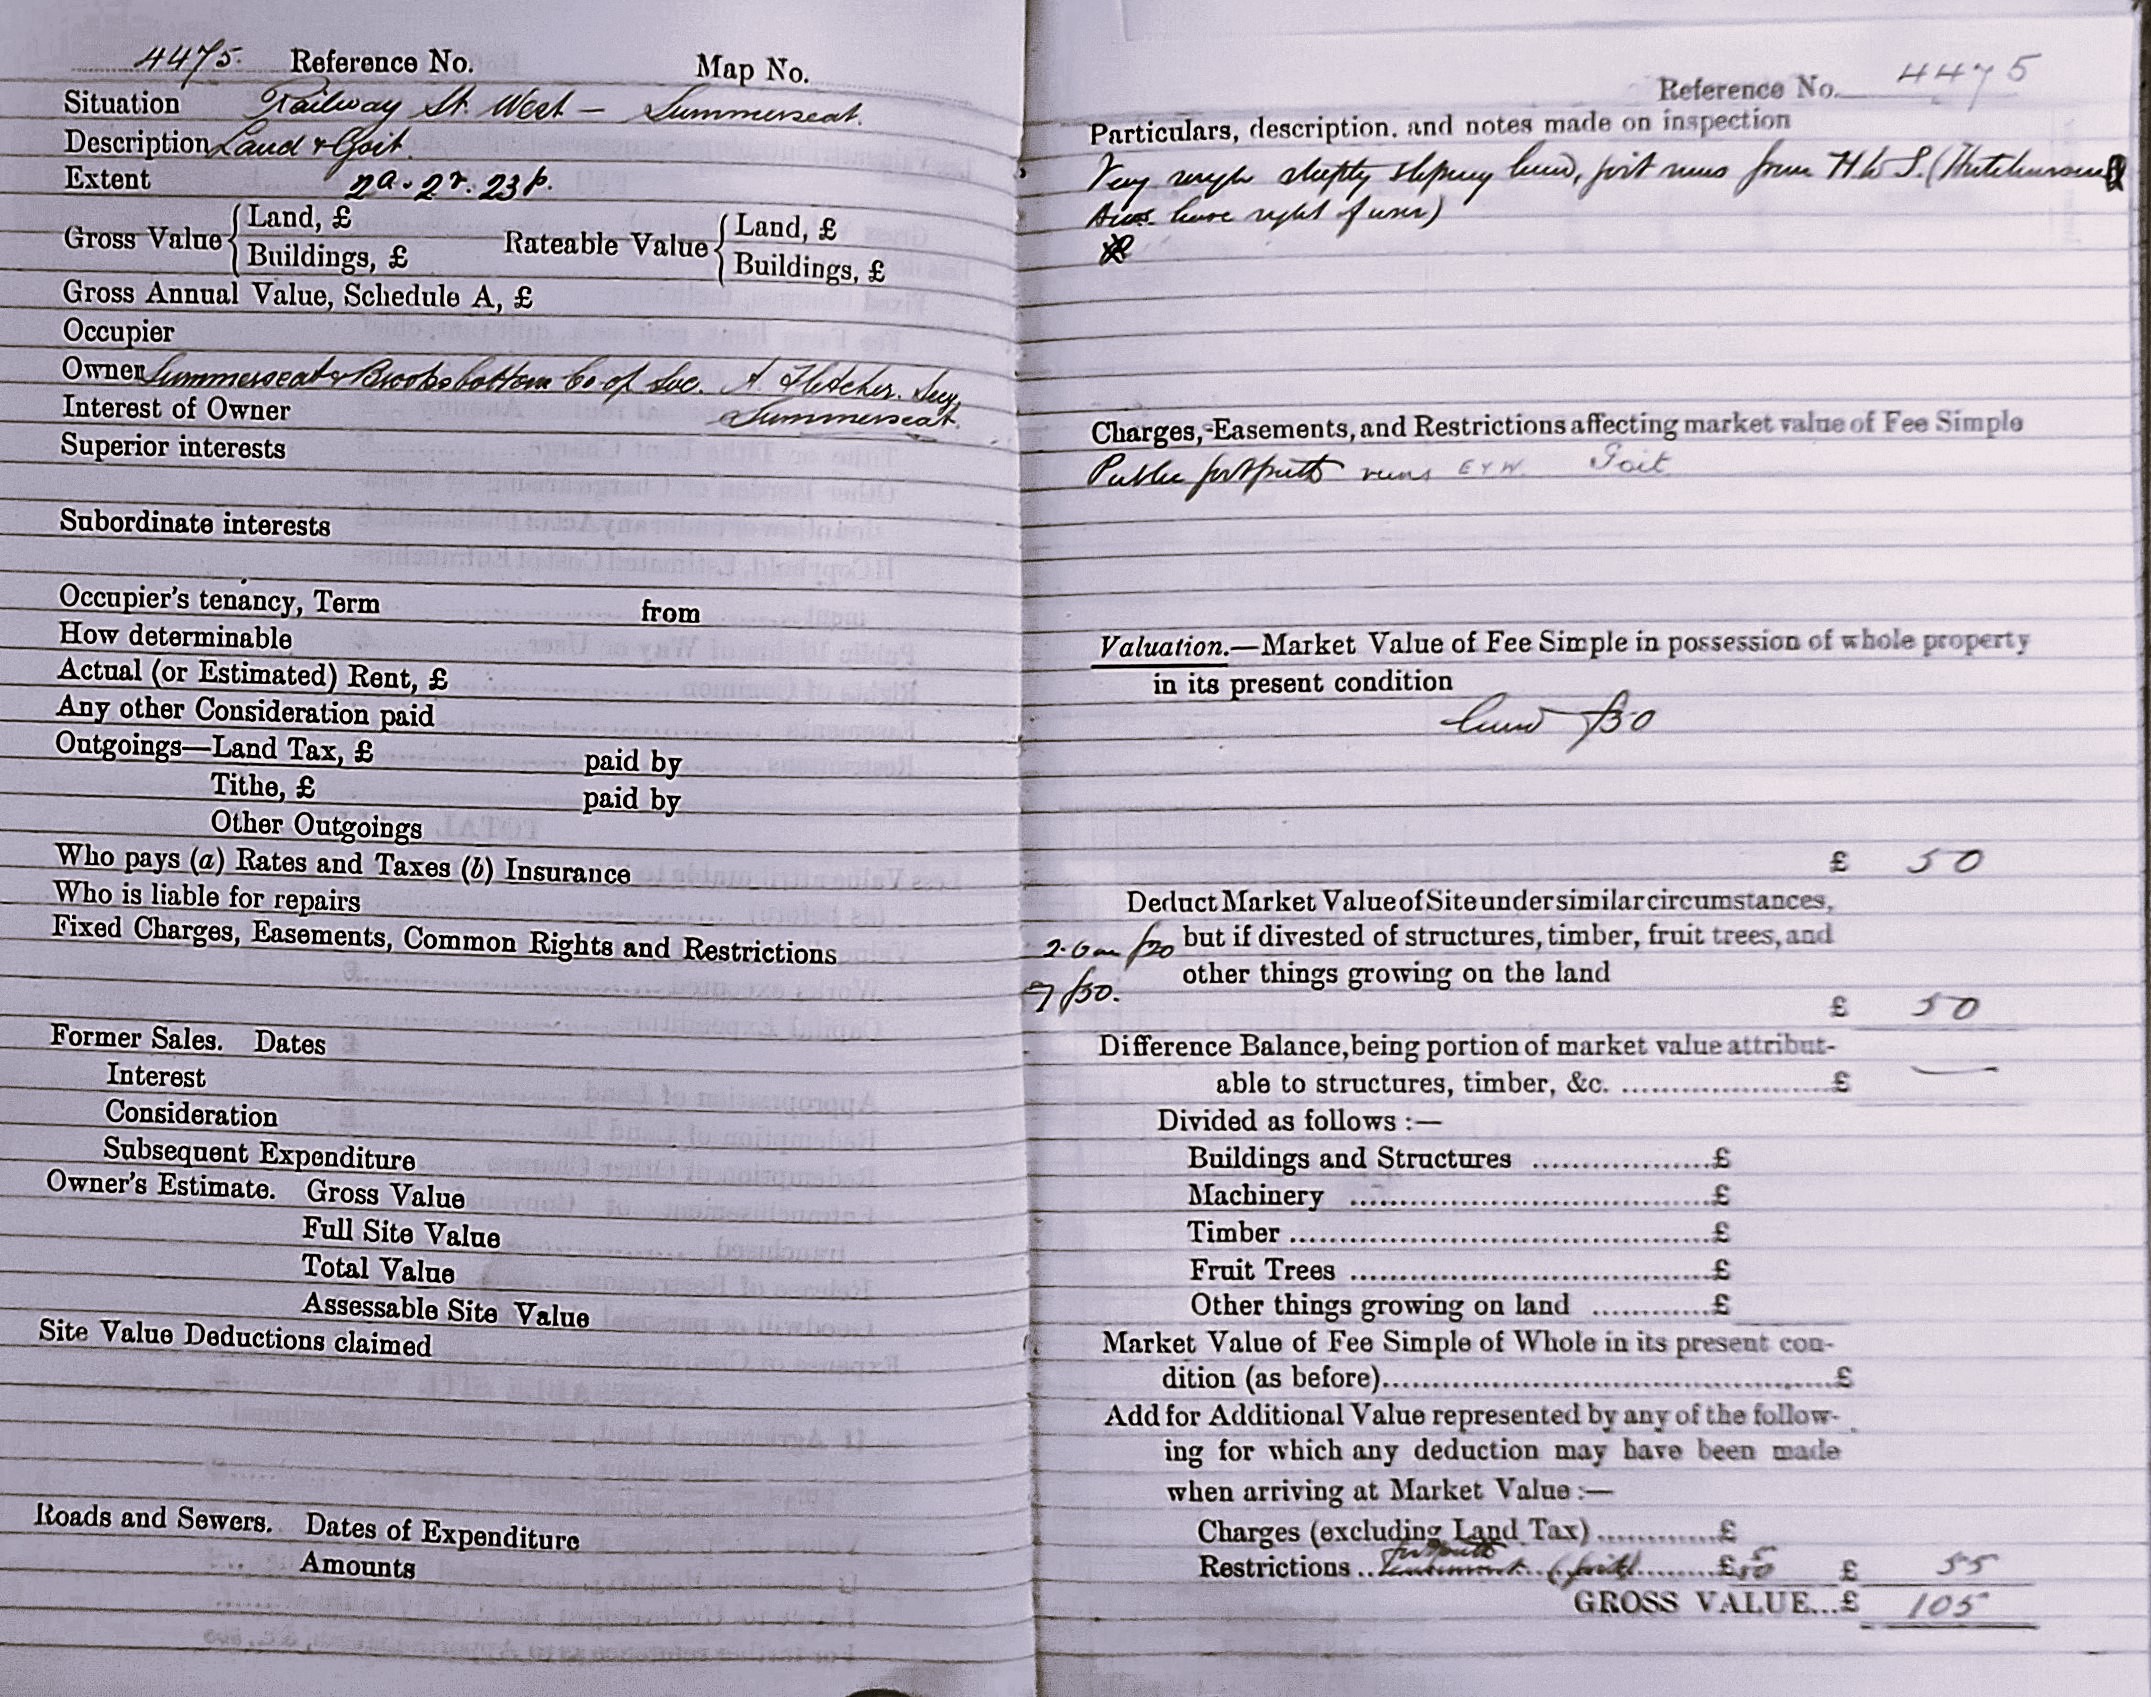 4475. Reference No. Map No.
Situation Railway St. West — Summerseat.
Description Land & Goit.
Extent 2a. 2r. 23p.
Gross Value { Land, £ Rateable Value { Land, £
Buildings, £ Buildings, £
Gross Annual Value, Schedule A, £
Occupier
Owner Summerseat & Brooksbottom Co op Soc. A. Fletcher. Secy,
Interest of Owner Summerseat.
Superior interests
Subordinate interests
Occupier's tenancy, Term from
How determinable
Actual (or Estimated) Rent, £
Any other Consideration paid
Outgoings—Land Tax, £ paid by
Tithe, £ paid by
Other Outgoings
Who pays (a) Rates and Taxes (b) Insurance
Who is liable for repairs
Fixed Charges, Easements, Common Rights and Restrictions
Former Sales. Dates
Interest
Consideration
Subsequent Expenditure
Owner's Estimate. Gross Value
Full Site Value
Total Value
Assessable Site Value
Site Value Deductions claimed
Roads and Sewers. Dates of Expenditure
Amounts
Reference No. 4475
Particulars, description, and notes made on inspection
Very rough steeply slopeing land, goit runs from H.W S. (Hutchinson
have right of user)
Charges, Easements, and Restrictions affecting market value of Fee Simple
Public footpath runs E & W. Goit
Valuation.—Market Value of Fee Simple in possession of whole property
in its present condition
Land £50
£ 50
Deduct Market Value of Site under similar circumstances,
but if divested of structures, timber, fruit trees, and
other things growing on the land
£20
£50.
£ 50
Difference Balance, being portion of market value attribut-
able to structures, timber, &c. ........................£ —
Divided as follows :—
Buildings and Structures ....................£
Machinery .......................................£
Timber ..............................................£
Fruit Trees .......................................£
Other things growing on land ............£
Market Value of Fee Simple of Whole in its present con-
dition (as before)................................................£
Add for Additional Value represented by any of the follow-
ing for which any deduction may have been made
when arriving at Market Value :—
Charges (excluding Land Tax)............£
footpath 5
Restrictions .. Easement (goit) ........£50 £ 55
GROSS VALUE...£ 105